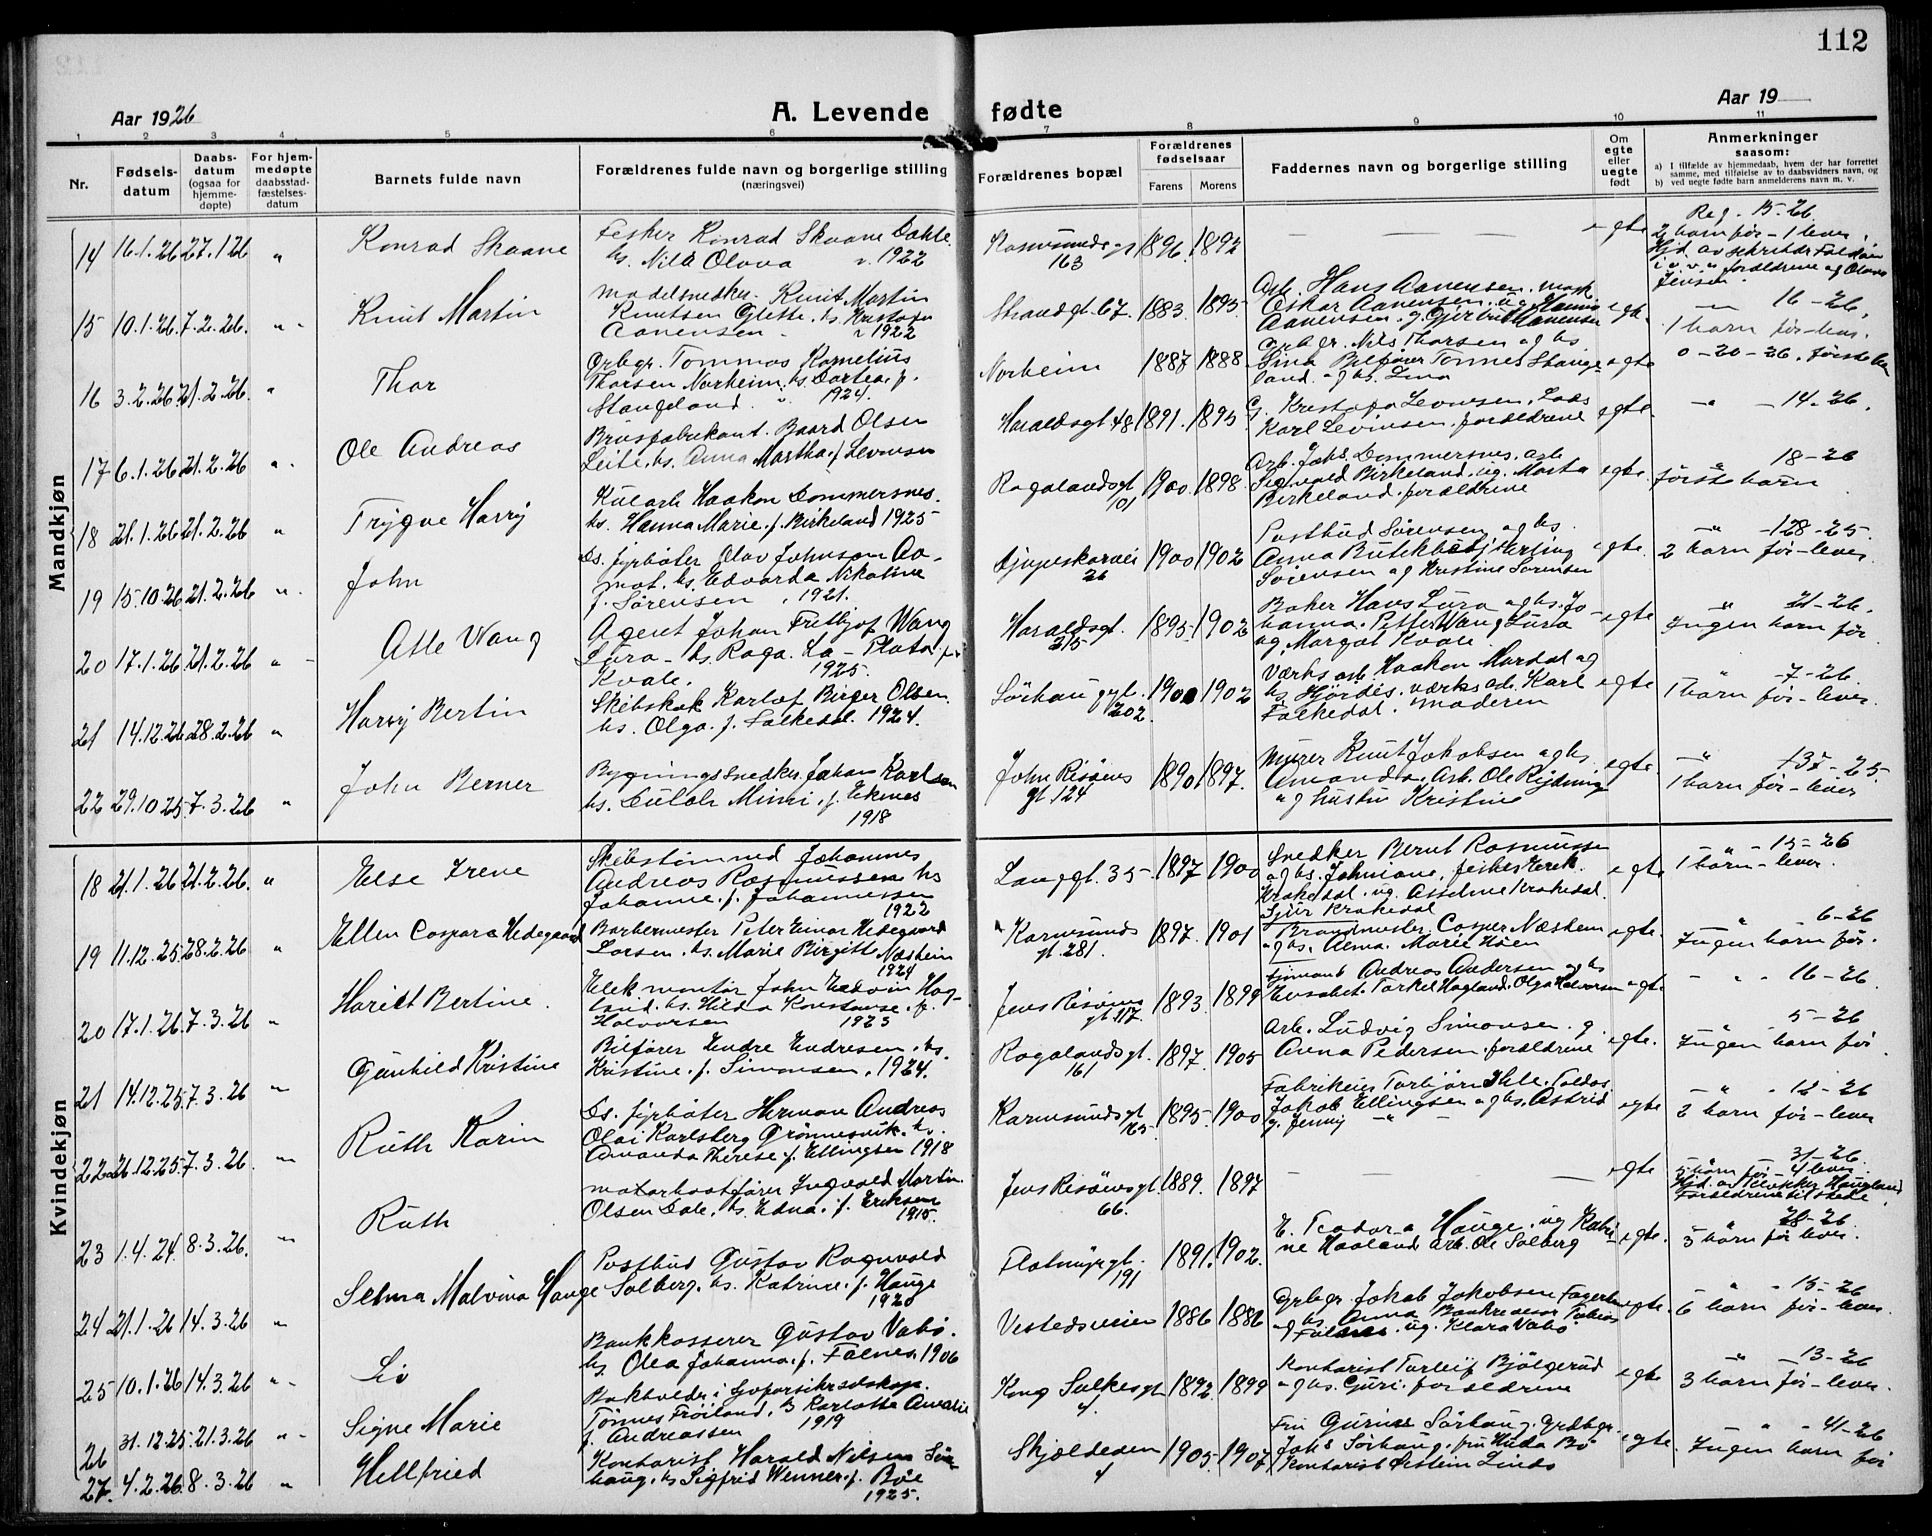 112
Aar 1926
A. Levende fødte
Aar 19
1 2 3 4 5 6 7 8 9 10 11
Nr.
Fødselsdatum
Daabsdatum (ogsaa for hjemmedøpte)
For hjemmedøpte daabsstadfæstelsesdatum
Barnets fulde navn
Forældrenes fulde navn og borgerlige stilling (næringsvei)
Forældrenes bopæl
Forældrenes fødselsaar
Farens Morens
Faddernes navn og borgerlige stilling
Om egte eller uegte født
Anmerkninger saasom:
a) I tilfælde av hjemmedaab, hvem der har forrettet samme, med tilføielse av to daabsvidners navn, og
b) ved uegte fødte barn anmelderens navn m. v.
Mandkjøn
14 16.1.26 27.1.26 " Konrad Skaane
Fisker Konrad Skaane Dahle
hs. Nilla Olava 1922
Karmsundsgt 163 1896. 1892 egte
Reg. 15-26.
2 barn før - 1 lever.
15 10.1.26. 7.2.26. " Knut Martin
Modelsnedker. Knut Martin
Knutsen Glette. hs. Kristofa
Aanensen 1922
Strandgt. 67. 1883. 1895.
Arb. Hans Aanensen, mask.
Oskar Aanensen. ug Hanna
Aanensen. g. Gjertrud Aanensen
egte. 16-26,
1 barn før-lever.
16 3.2.26 21.2.26. " Thor
Grbgr. Tommas Kornelius
Thorsen Norheim. hs. Dortea. f.
Stangeland. 1924.
Norheim 1887 1888
Grbgr. Nils Thorsen og hs.
Sina Bilfører Tønnes Stangeland. og hs. Lina
egte 0-20-26. første barn
17 6.1.26 21.2.26 " Ole Andreas
Brusfabrikant. Baard Olsen
Leite. hs. Anna Martha. f. Levinsen
Haraldsgt 48 1891. 1895.
G. Kristofa Levinsen, Lods
Karl Levinsen. forældrene
egte. 14-26.
18 21.1.26 21.2.26 " Trygve Harry
Kularb. Haakon Dommersnes.
hs. Hanna Marie. f. Birkeland 1925
Rogalandsgt 101 1900. 1898.
Arb. Johs. Dommersnes. arb.
Sigwald Birkeland. ug. Marta
Birkeland. forældrene
egte. 18-26
første barn
19 15.10.26 21.2.26 " John
Ds. fyrbøter Olav Johnson Aamot. hs. Edvarda Nikoline
f. Sørensen, 1921.
Djupeskarvei 26 1900 1902
Postbud Sørensen og hs.
Anna
Sørensen og Kristine Sørensen
egte. 128-25.
2 barn før-lever
20 17.1.26 21.2.26 " Atle Wang
Agent Johan Fritjof Wang
Lura - hs. Raga. La-Plata. f.
Kvale. 1925.
Haraldsgt. 215 1895. 1902
Baker Hans Lura og hs. Johanna. Petter Wang Lura
og Margot Kvale.
egte 21-26.
Ingen barn før.
21 14.12.26 28.2.26 " Harry Bertin
Skibskok Karlof Birger Olsen.
hs. Olga. f. Falkedal. 1924.
Sørhauggt. 202. 1900 1902
Værks arb. Haakon Mardal og
hs Hjørdis. værks arb. Karl
Falkedal. Moderen
egte 7-26.
1 barn før-lever.
22 29.10.25 7.3.26 " John Berner
Bygningssnedker. Johan Karlsen
hs. Minni. f. Eknes
1918
John Risøens gt. 124 1890 1897.
Murer Knut Jakobsen og hs.
Amanda. Arb. Ole
og hustru Kristine
egte. 135-25.
1 barn før-lever
Kvindekjøn
18 21.1.26 21.2.26. " Else Irene
Skibstømmed Johannes
Andreas Rasmussen hs
Johanne. f. Johannessen
1922
Langgt. 35 1897 1900
Snedker Bernt Rasmussen
og hs. Johanne, fisker Henrik
Krakedal. ug. Asseline Krakedal
Sjur Krakedal
egte 15-26
1 barn - lever.
19 11.12.25 28.2.26 " Ellen Caspara Hedegaard
Barbermester Peter Einar Hedegaard
Larsen. hs. Marie Birgitte Næsheim
1924
Karmsundsgt. 281. 1897. 1901
Brandmester Casper Næsheim
og hs. Anna. Marie Høen
egte. 6-26
Ingen barn før.
20 17.1.26. 7.3.26 " Hariet Bertine.
Elek. montør John Edvin Hagland. hs. Hilda Konstanse. f.
Halvorsen 1923
Jens Risøens gt. 117. 1893. 1899
Sjømand Andreas Andersen og hs
Elisabet. Torkel Hagland. Olga Halvorsen
egte. 16-26
21 14.12.25 7.3.26 " Gunhild Kristine
Bilfører Endre Endresen. hs.
Kristine. f. Simonsen. 1924.
Rogalandsgt. 161 1897. 1905
Arb. Ludvig Simonsen. g.
Anna Pedersen. forældrene
egte. 5-26
Ingen barn før
22 26.12.25 7.3.26. " Ruth Karin
Ds. fyrbøter Herman Andreas
Olai Karlsberg Grønnesvik. hs.
Amanda Therese f. Ellingsen 1918
Karmsundsgt 165. 1895. 1900
Fabrikeier Torbjørn Ihle. Toldas.
Jakob Ellingsen og hs. Astrid
g. Jenny
egte 12-26
2 barn før-lever
23 1.4.24. 8.3.26. " Ruth
Motorbaatfører Ingvald Martin
Olsen Dale. hs Edna. f. Eriksen
1915.
Jens Risøensgt. 66. 1889. 1897
egte 31-26.
5 barn før-4 lever.
Forældrene tilstede
24 21.1.26 14.3.26 " Selma Malvina Hauge
Postbud Gustav Ragnvald
Solberg. hs. Katrine. f. Hauge
1920
Flotmyrgt. 191 1891. 1902.
E. Teodora Hauge. ug Katrine Haaland arb. Ole Solberg
egte. 28-26.
3 barn før lever.
25 10.1.26 14.3.26 " Liv
Bankkasserer Gustav Vabø.
hs. Olea Johanna. f. Falnes. 1906
Vestedsveien 1886 1886
Grbgr. Jakob Jakobsen
og hs. Anna Bankrevisor Tobias
Falnes. ug. Klara Vabø
egte. 15-26
6 barn før-lever.
26 31.12.25. 21.3.26 " Signe Marie
Bokholder i Sjøforsikrselskap.
Tønnes Frøiland. hs Karlotta Amalie
f. Andreassen 1919
Kong Sulkesgt 4. 1892. 1899
Kontorist Torleif Bjølgerud
og hs. Guri. forældrene
egte 13-26
3 barn før-lever.
27. 4.2.26. 8.3.26 " Hellfried
Kontorist Harald Nilsen Sørhaug. hs Sigfrid Wenner. f. Bøe
1925.
Skjoldeveien 4 1905. 1907
Fru Gurine Sørhaug. Grdbgr.
Johs Sørhaug. fru Hulda Bø
Kontorist Øistein Linds
egte. 41-26
Ingen barn før